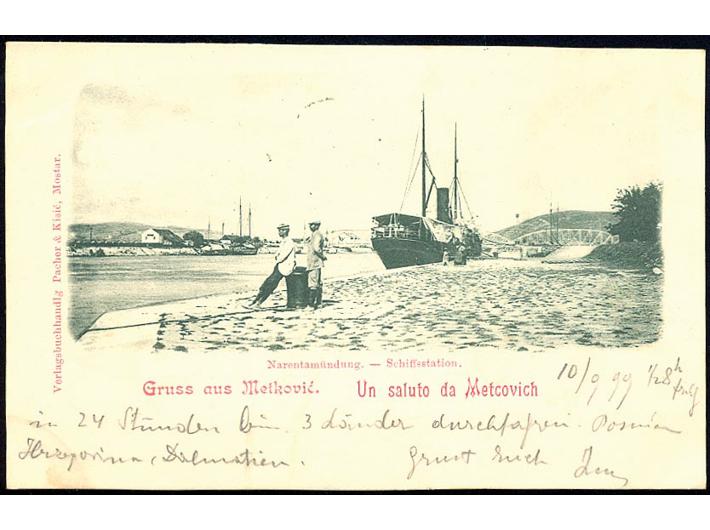 Verlagsbuchhandlg Pacher & Kisić, Mostar.
Narentamündung. — Schiffsstation.
Gruss aus Metković. Un saluto da Metcovich
10/9 99 1/2 8h
in 24 Stunden bin 3 Länder durchfahren. Bosnien
Herzegovina, Dalmatien. Gruss Euch